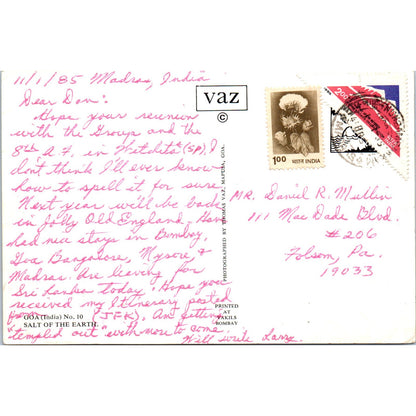 11/1/85 Madras, India
Dear Don:
Hope your reunion
with the Group and the
8th A.F. in Witchita (SP), I
don't think I'll ever know
how to spell it for sure.
Next year will be back
in Jolly Old England. Have
had nice stays in Bombay,
Goa Bangalore, Mysore, &
Madras. Are leaving for
Sri Lanka today. Hope your
received my Itinerary posted
from (JFK). Am getting
"templed out" with more to come.
Will write Larry.
GOA (India) No. 10
SALT OF THE EARTH.
vaz
©
PHOTOGRAPHED BY THOMAS VAZ, MAPUSA, GOA.
PRINTED
AT
VAKILS
BOMBAY
1.00 INDIA
2.00
MR. Daniel R. Mullin
111 MacDade Blvd.
#206
Folsom, Pa.
19033